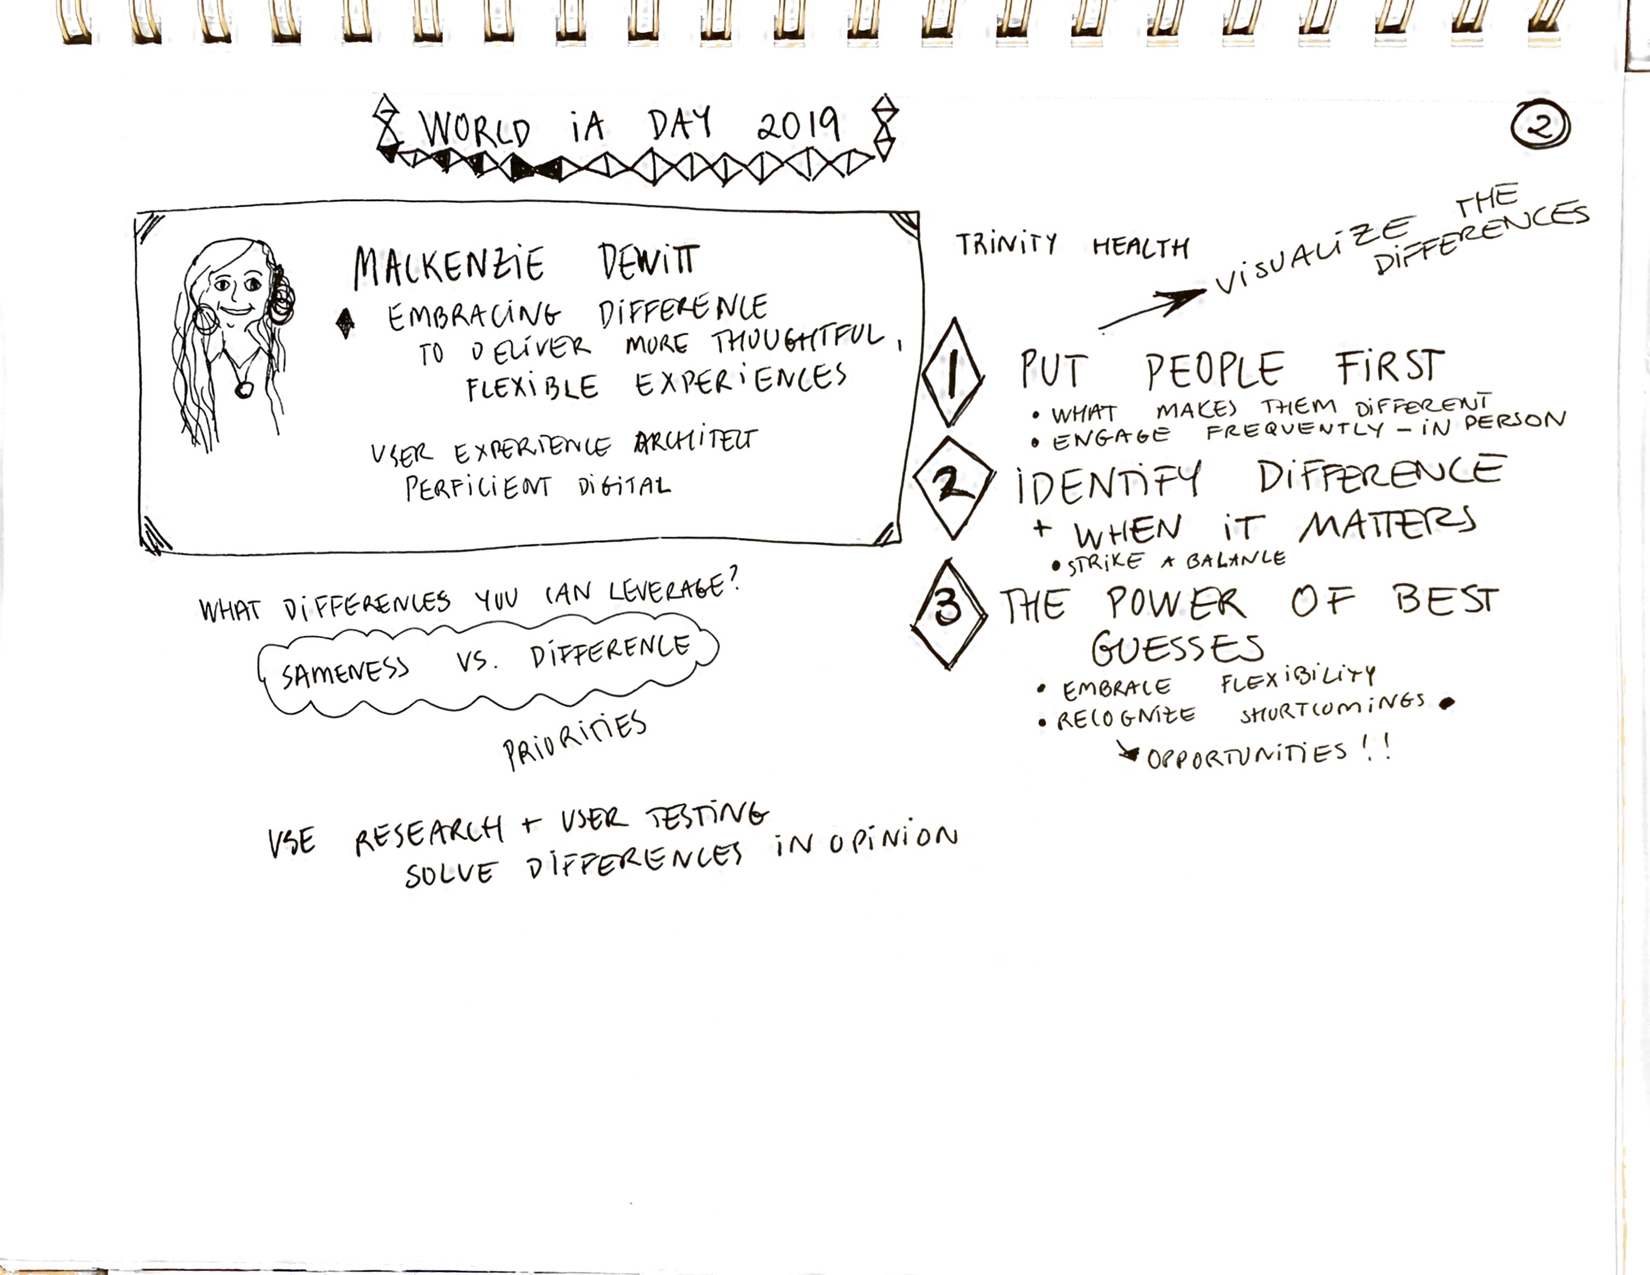 WORLD iA DAY 2019
2
MACKENZIE DEWITT
EMBRACING DIFFERENCE
TO DELIVER MORE THOUGHTFUL,
FLEXIBLE EXPERIENCES
USER EXPERIENCE ARCHITECT
PERFICIENT DIGITAL
WHAT DIFFERENCES YOU CAN LEVERAGE?
SAMENESS VS. DIFFERENCE
PRIORITIES
USE RESEARCH + USER TESTING
SOLVE DIFFERENCES IN OPINION
TRINITY HEALTH
VISUALIZE THE
DIFFERENCES
1 PUT PEOPLE FIRST
• WHAT MAKES THEM DIFFERENT
• ENGAGE FREQUENTLY – IN PERSON
2 IDENTIFY DIFFERENCE
+ WHEN IT MATTERS
• STRIKE A BALANCE
3 THE POWER OF BEST
GUESSES
• EMBRACE FLEXIBILITY
• RECOGNIZE SHORTCOMINGS •
OPPORTUNITIES!!